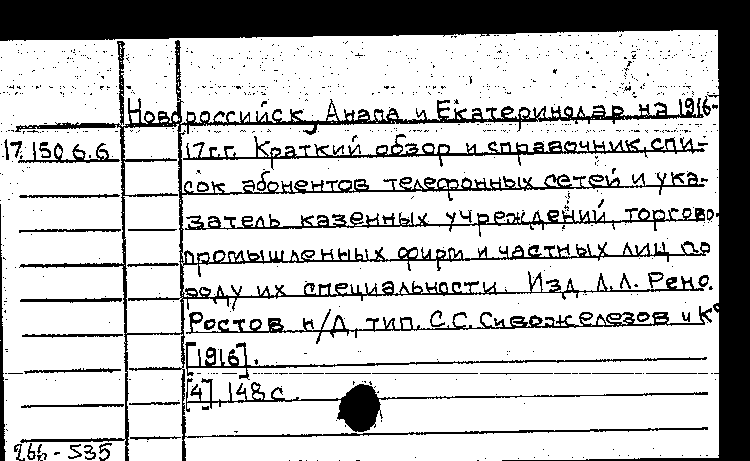 Новороссийск, Анапа и Екатеринодар на 1916-
17.150.6.6 17г.г. Краткий обзор и справочник, спи-
сок абонентов телефонных сетей и ука-
затель казенных учреждений, торгово-
промышленных фирм и частных лиц по
роду их специальности. Изд. Л.Л. Рено.
Ростов н/Д, тип. С.С. Сивожелезов и К°
[1916].
[4], 148 с.
266-535